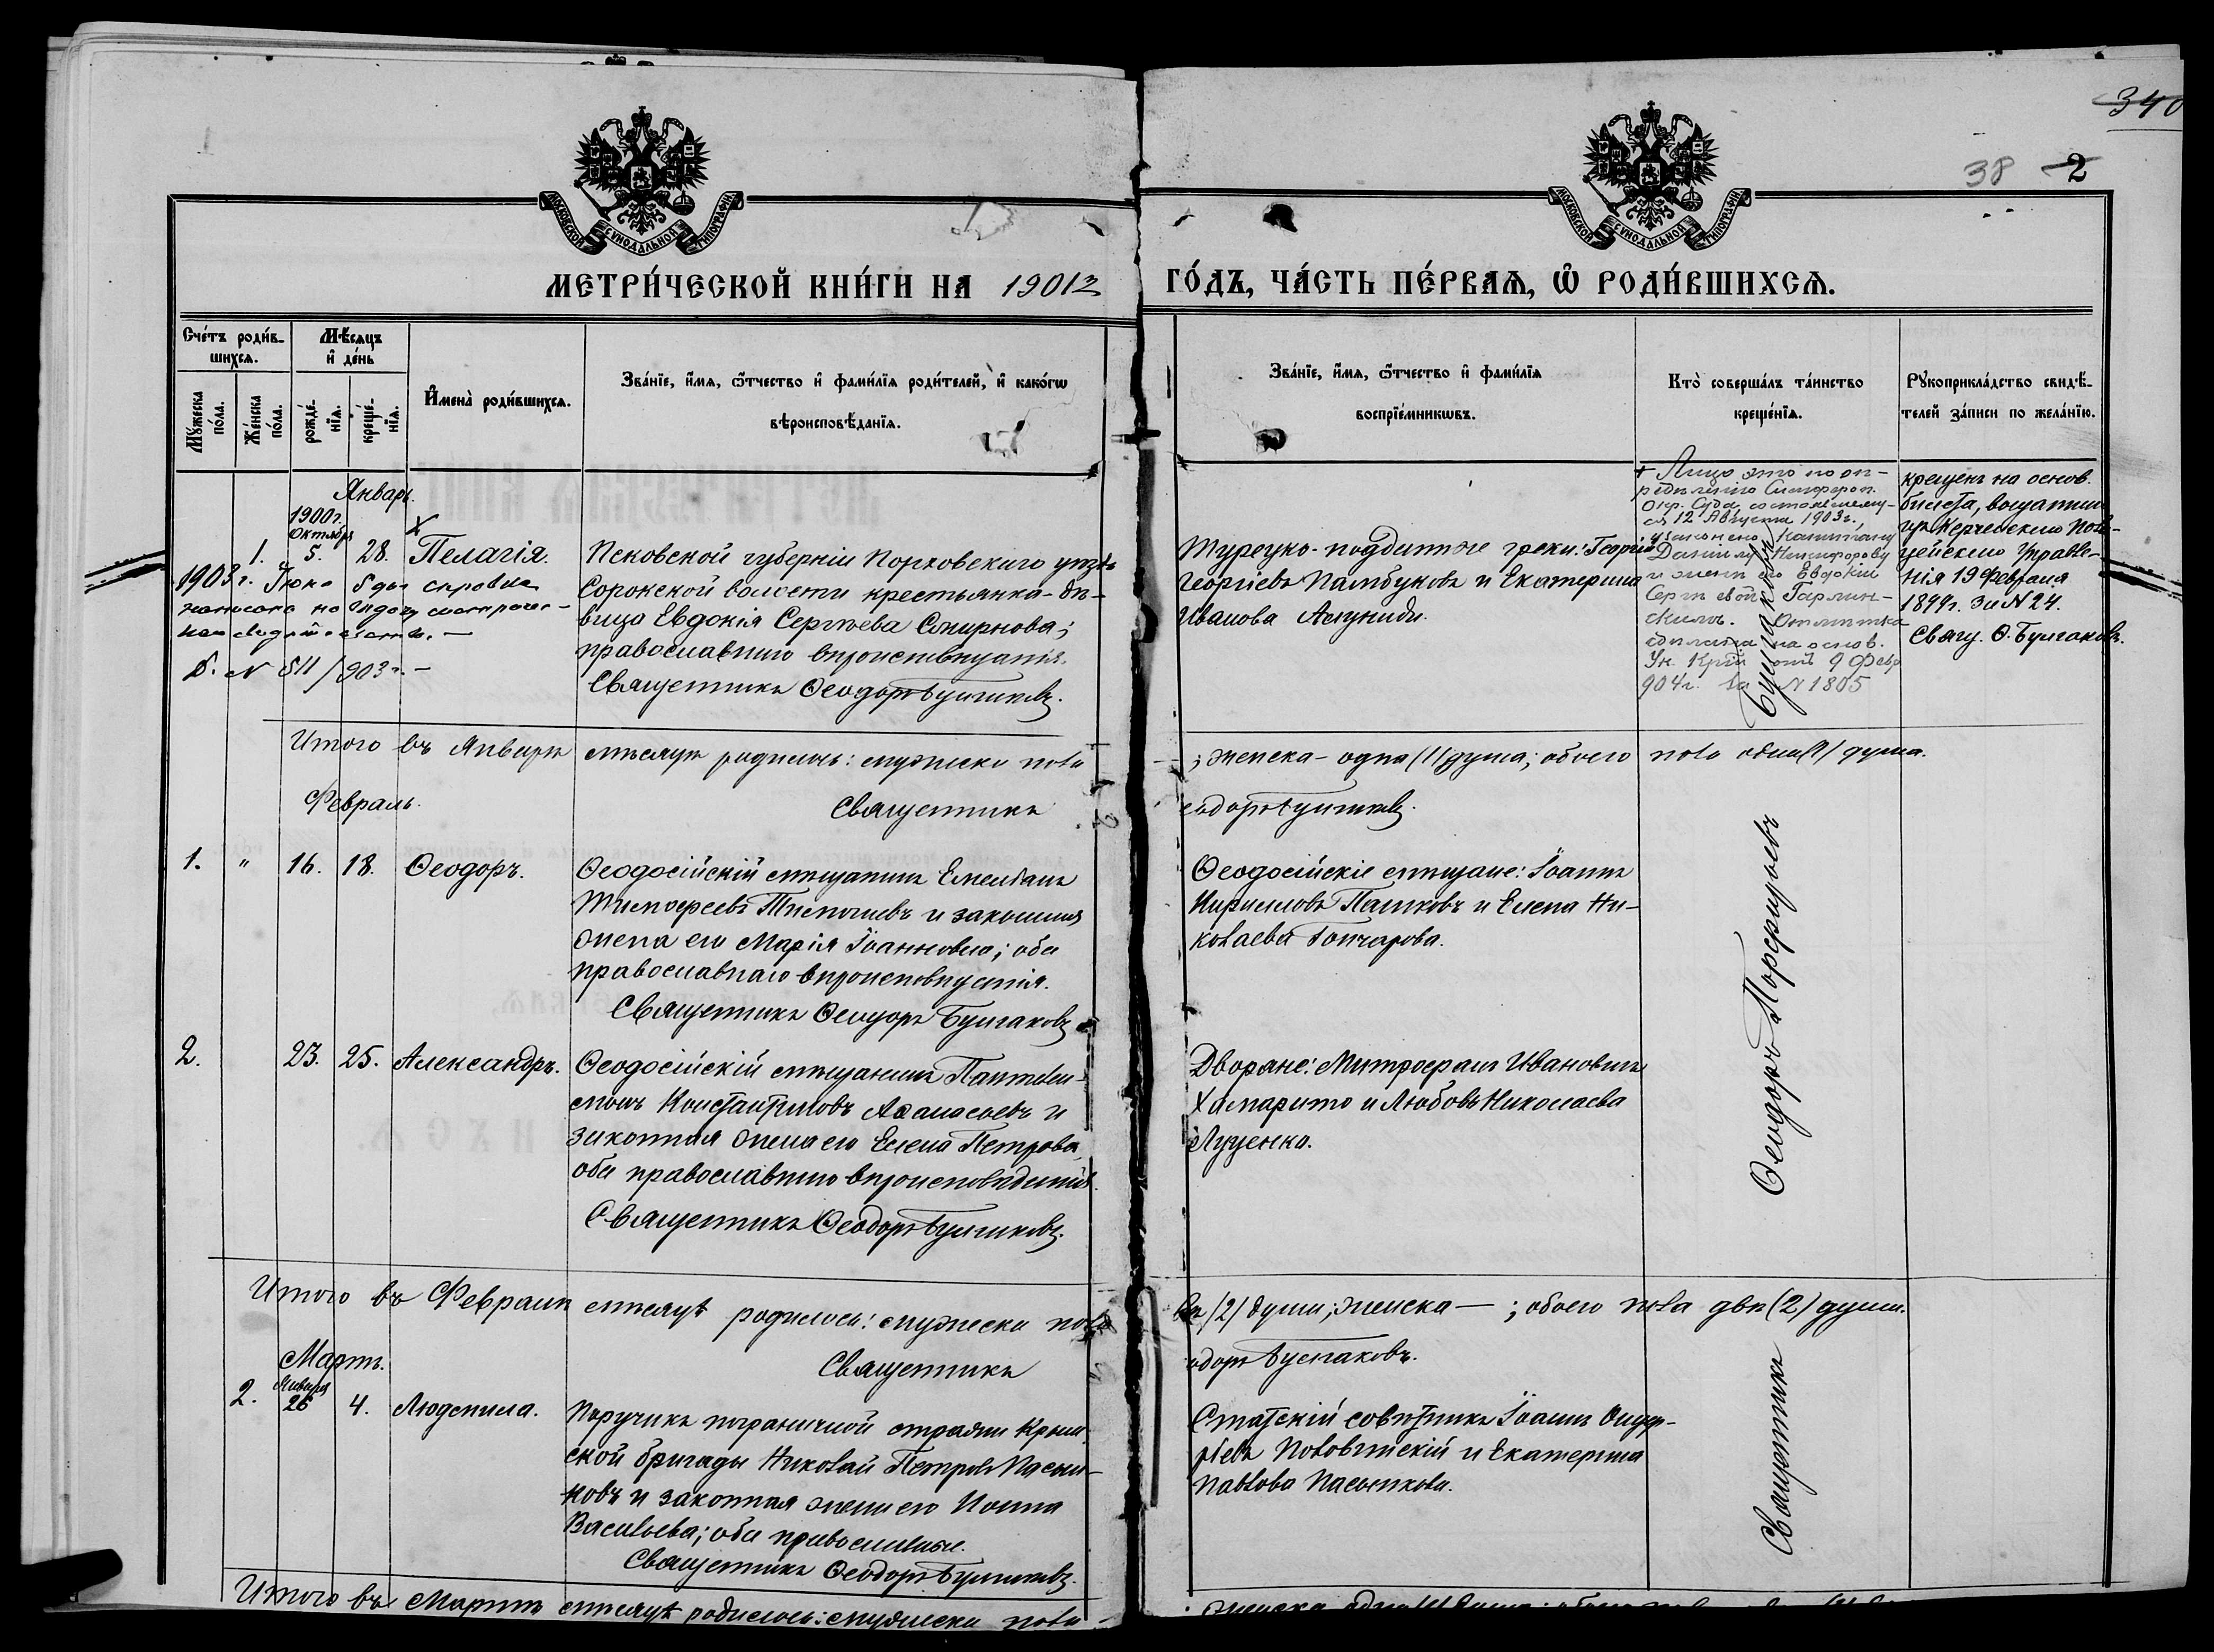 340
38 2
МОСКОВСКОЙ СѴНОДАЛЬНОЙ ТИПОГРАФІИ
МОСКОВСКОЙ СѴНОДАЛЬНОЙ ТИПОГРАФІИ
МЕТРИ́ЧЕСКОЙ КНИ́ГИ НА 1901 ГО́ДЪ, ЧА́СТЬ ПЕ́РВАѦ, Ѡ҆ РОДИ́ВШИХСѦ.
Сче́тъ роди́в-
шихсѧ.
Мꙋ́жеска по́ла.
Же́нска по́ла.
Мѣ́сѧцъ
и҆ де́нь
рожде́-
нїѧ.
креще́-
нїѧ.
И҆мена̀ роди́вшихсѧ.
Зва́нїе, и҆́мѧ, ѻ҆́тчество и҆ фами́лїѧ роди́телей, и҆ како́гѡ
вѣроисповѣ́данїѧ.
Зва́нїе, и҆́мѧ, ѻ҆́тчество и҆ фами́лїѧ
воспрїе́мникѡвъ.
Кто̀ соверша́лъ та́инство
креще́нїѧ.
Рꙋкоприкла́дство свидѣ́-
телей за́писи по жела́нїю.
Январь.
1900 г.
Октября
1. 5. 28. Пелагія.
Псковской губерніи Порховскаго уѣзда
Сорокской волости крестьянка-дѣ-
вица Евдокія Сергѣева Смирнова;
православнаго вѣроисповѣданія.
Священникъ Ѳеодоръ Булгаковъ.
1903 г. Іюня 8 дня справка
б. N 811/903 г. —
Турецко-подданные греки: Георгій
Георгіевъ Памбуковъ и Екатерина
Иванова
+ Лицо это по оп-
редѣленію Симфероп.
Окр. Суда, состоявшему-
ся 12 Августа 1903 г.,
усыновлено Капитану
Даніилу Никифорову
и женѣ его Евдокіи
Сергѣевой Гарлин-
скимъ. Отмѣтка
сдѣлана на основ.
Ук. отъ 9 Февр
904 г. за N 1805
крещенъ на основ.
билета, выданнаго
изъ Керченскаго Поли-
цейскаго Управле-
нія 19 Февраля
1899 г. за N 24.
Свящ. Ѳ. Булгаковъ.
Итого въ Январѣ мѣсяцѣ родилось: мужеска пола — ; женска — одна (1) душа; обоего пола одна (1) душа.
Священникъ Ѳеодоръ Булгаковъ.
Февраль.
1. " 16. 18. Ѳеодоръ.
Ѳеодосійскій мѣщанинъ Емеліанъ
Тимофеевъ и законная
жена его Марія Іоанновна; оба
православнаго вѣроисповѣданія.
Священникъ Ѳеодоръ Булгаковъ.
Ѳеодосійскіе мѣщане: Іоаннъ
Кирилловъ Пашковъ и Елена Ни-
колаева Гончарова.
2. 23. 25. Александръ.
Ѳеодосійскій мѣщанинъ Пантелеи-
монъ Константиновъ Аѳанасьевъ и
законная жена его Елена Петрова,
оба православнаго вѣроисповѣданія.
Священникъ Ѳеодоръ Булгаковъ.
Дворяне: Митрофанъ Ивановичъ
Хамарито и Любовь Николаева
Луценко.
Итого въ Февралѣ мѣсяцѣ родилось: мужеска пола двѣ (2) души; женска — ; обоего пола двѣ (2) души.
Священникъ Ѳеодоръ Булгаковъ.
Мартъ.
Января
2. 26 4. Людмила.
Поручикъ пограничной стражи Крым-
ской бригады Николай Петровъ Пасын-
ковъ и законная жена его
Васильева; оба православные.
Священникъ Ѳеодоръ Булгаковъ.
Статскій совѣтникъ Іоаннъ
и Екатерина
Павлова Пасынкова.
Священникъ Ѳеодоръ Порфирьевъ Булгаковъ
Итого въ Мартѣ мѣсяцѣ родилось: мужеска пола